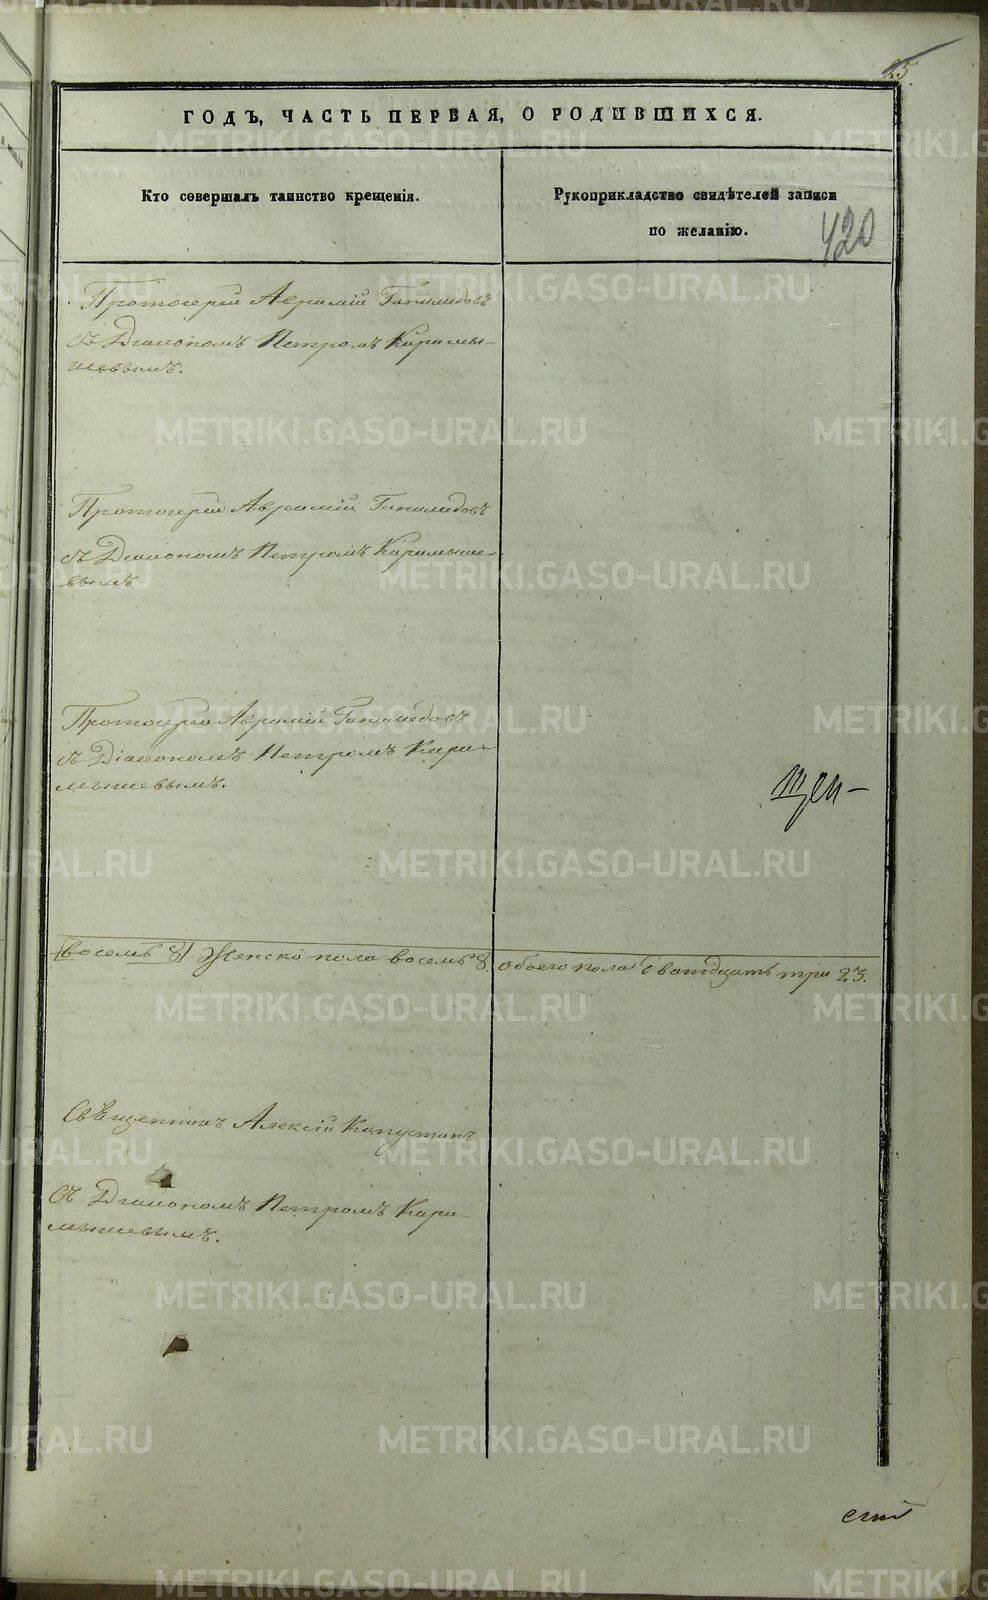 25.
ГОДЪ, ЧАСТЬ ПЕРВАЯ, О РОДИВШИХСЯ.
Кто совершалъ таинство крещенія.
Рукоприкладство свидѣтелей записи
по желанію.
420
Протоіерей Аврамій Ганимедовъ
съ Діакономъ Петромъ Карамы-
шевымъ.
Протоіерей Аврамій Ганимедовъ
съ Діакономъ Петромъ Карамыше-
вымъ
Протоіерей Аврамій Ганимедовъ
съ Діакономъ Петромъ Кара-
мышевымъ.
щен-
восемь 8) Женска пола восемь 8. обоего пола дватдцать три 23.
Священникъ Алексій Капустинъ
Съ Діакономъ Петромъ Кара-
мышевымъ.
METRIKI.GASO-URAL.RU